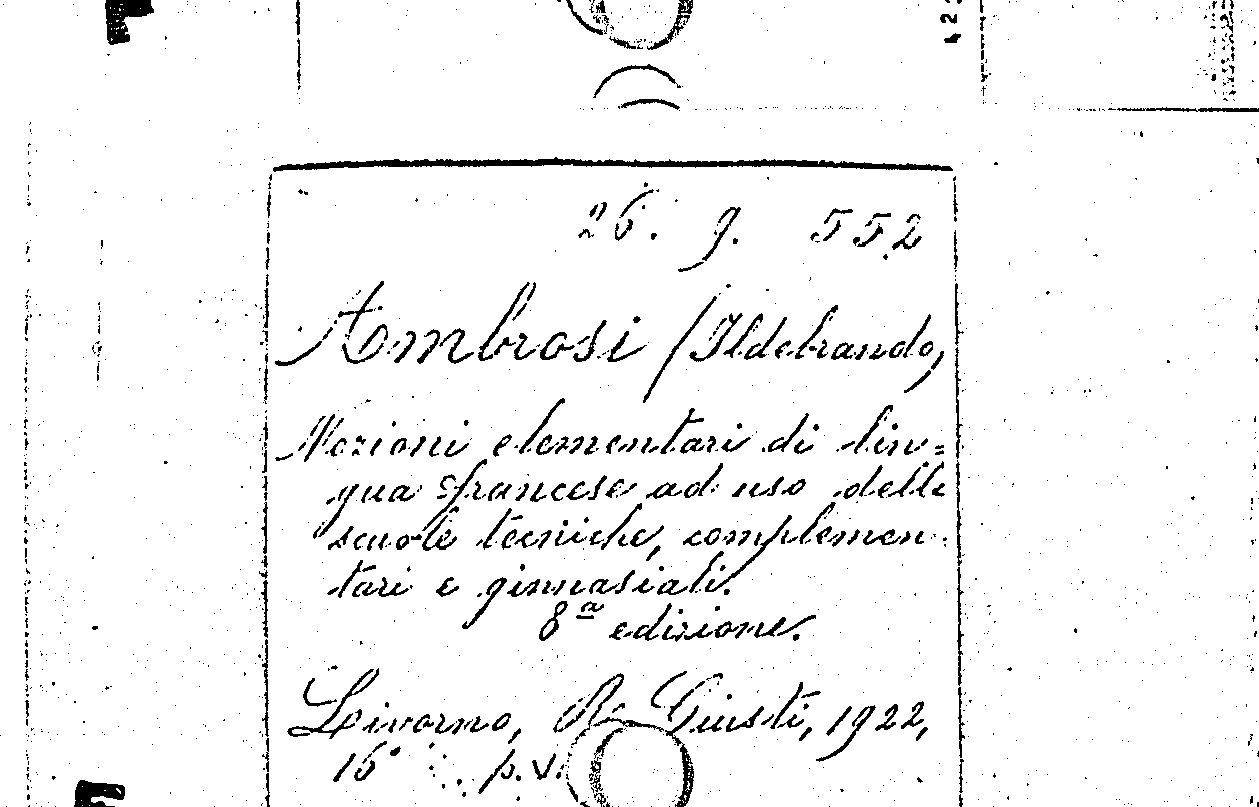 26. g. 552
Ambrosi /Ildebrando,
Nozioni elementari di lin=
gua francese ad uso delle
scuole tecniche, complemen-
tari e ginnasiali.
8ª edizione.
Livorno, R. Giusti, 1922,
16° p. VI